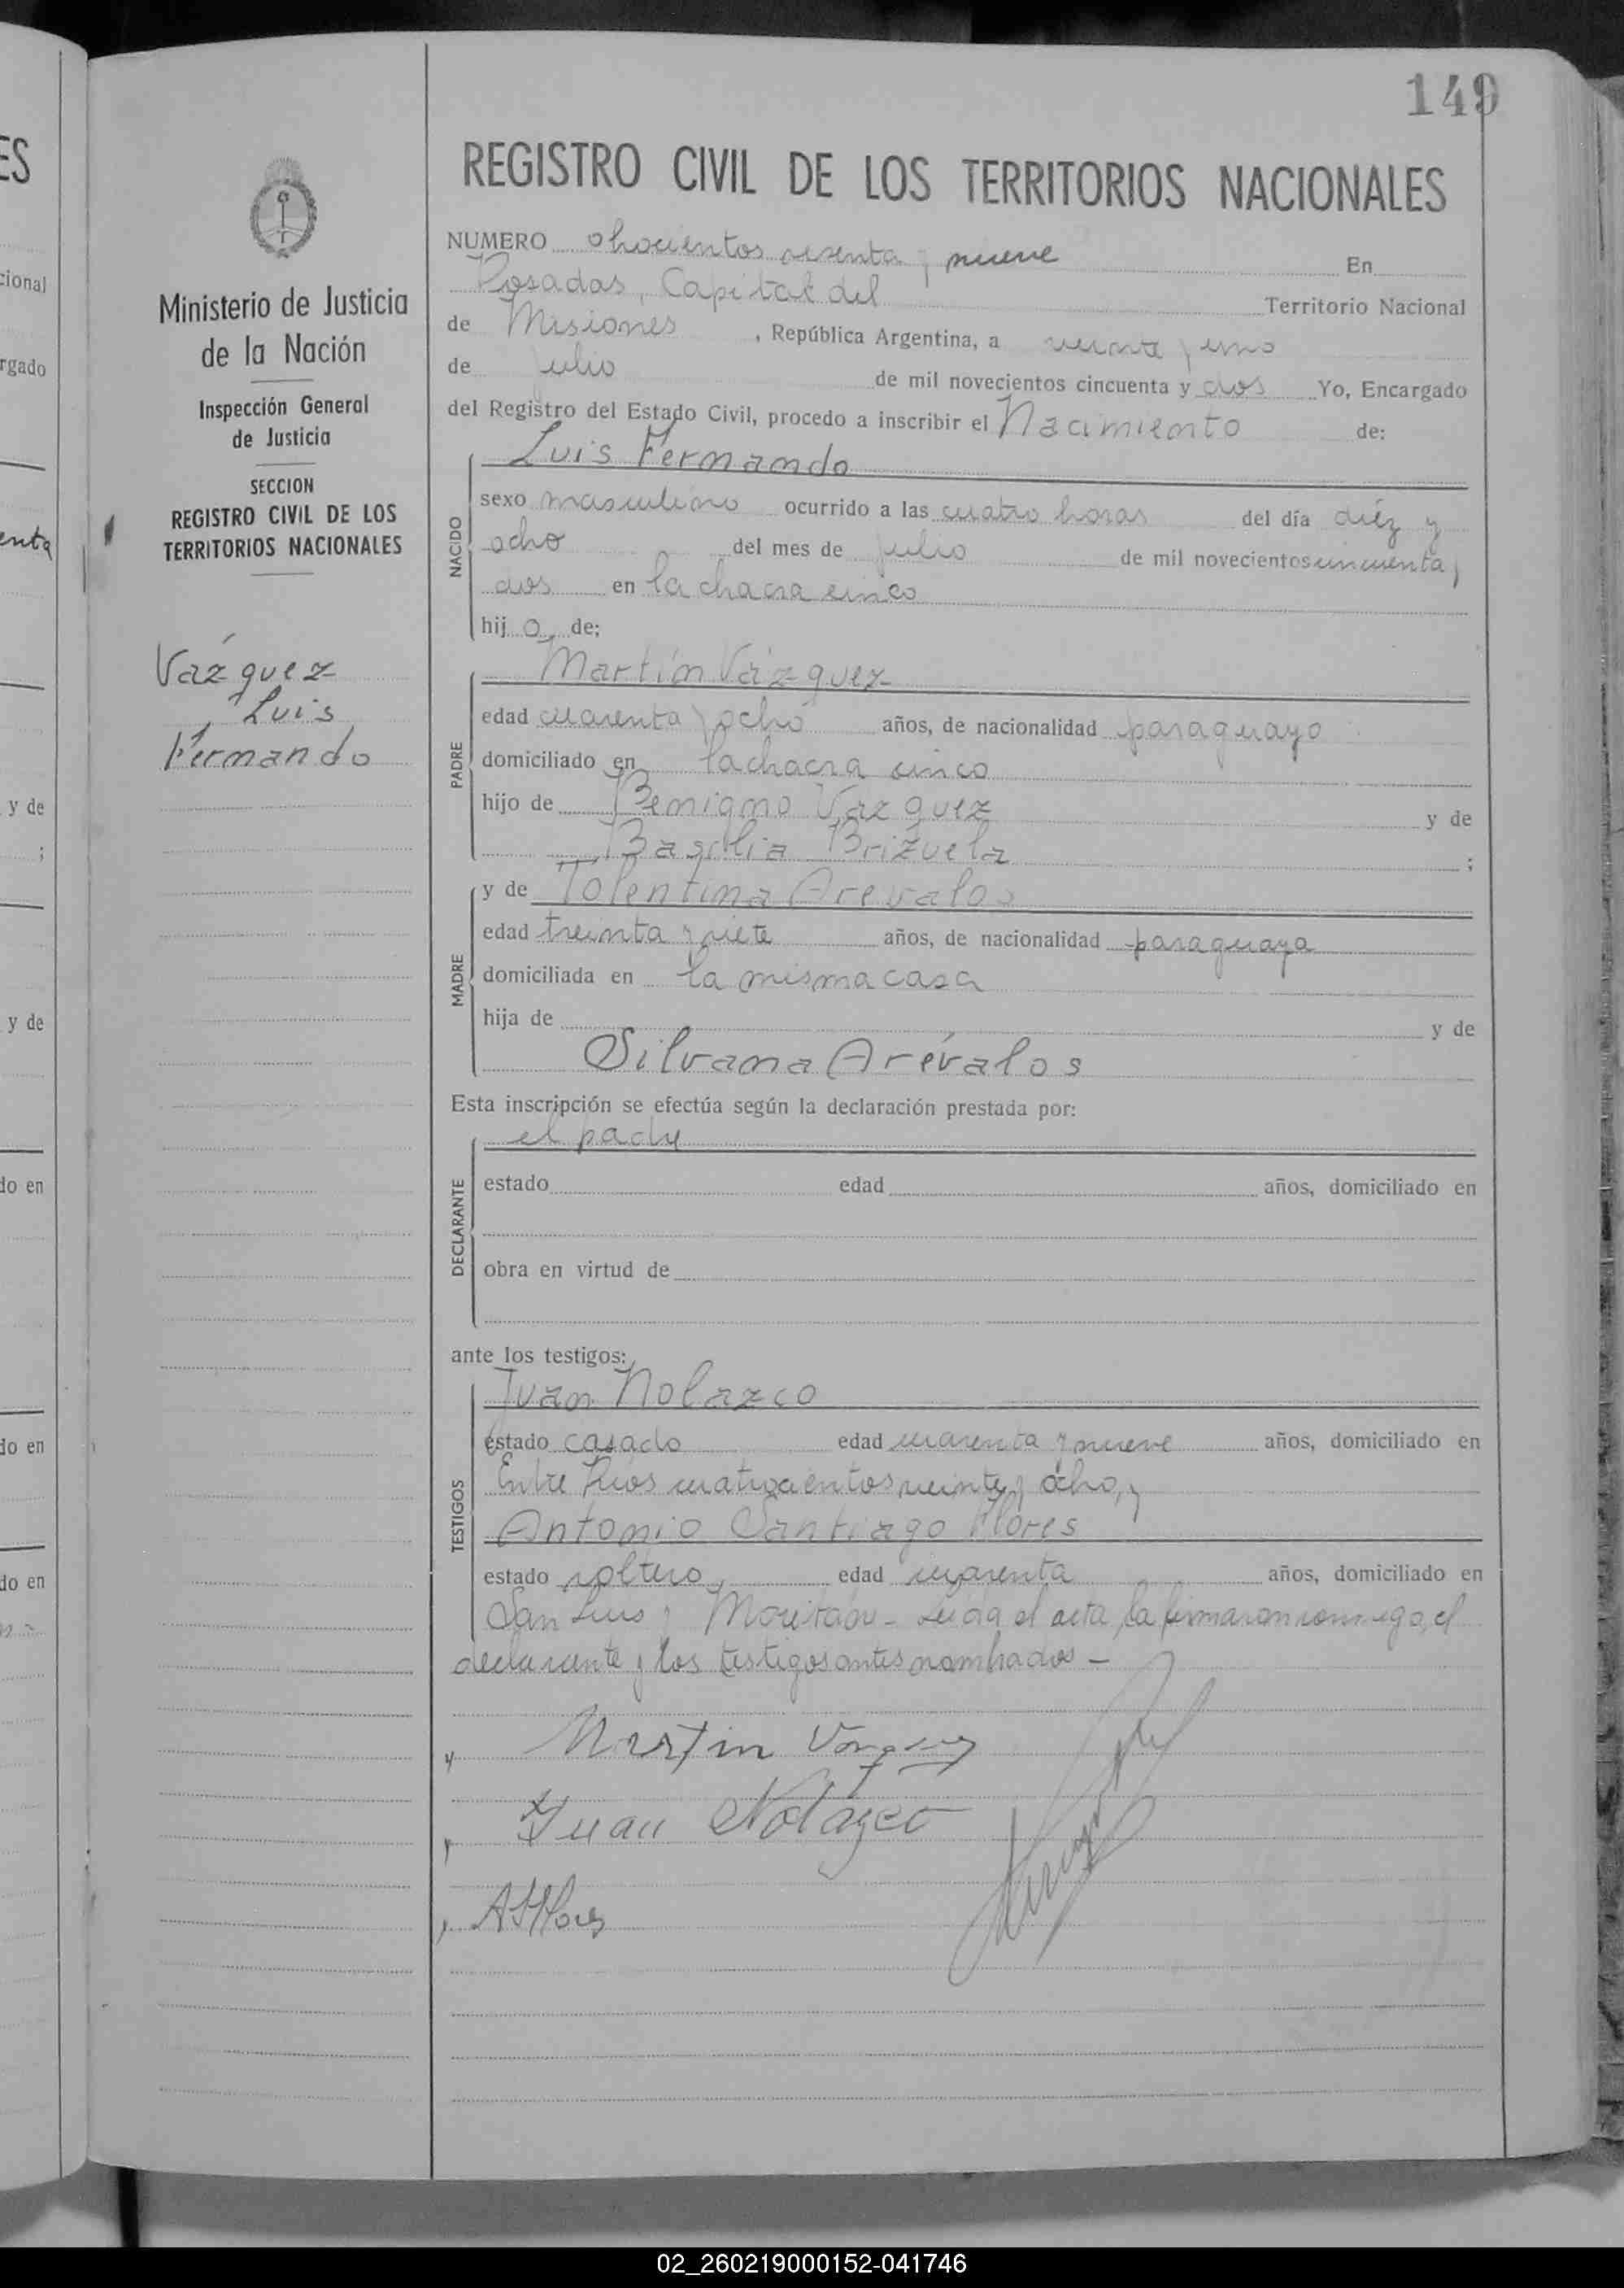 149
REGISTRO CIVIL DE LOS TERRITORIOS NACIONALES
Ministerio de Justicia
de la Nación
Inspección General
de Justicia
SECCION
REGISTRO CIVIL DE LOS
TERRITORIOS NACIONALES
Vázquez
, Luis
Fernando
NUMERO ochocientos sesenta y nueve En
Posadas, Capital del Territorio Nacional
de Misiones , República Argentina, a veinte y uno
de julio de mil novecientos cincuenta y dos Yo, Encargado
del Registro del Estado Civil, procedo a inscribir el Nacimiento de:
NACIDO
Luis Fernando
sexo masculino ocurrido a las cuatro horas del día diéz y
ocho del mes de julio de mil novecientos cincuenta y
dos en la chacra cinco
hij o de;
PADRE
Martín Vázquez
edad cuarenta y ocho años, de nacionalidad paraguayo
domiciliado en la chacra cinco
hijo de Benigno Vazquez y de
Basilia Brizuela ;
MADRE
y de Tolentina Arevalos
edad treinta y siete años, de nacionalidad paraguaya
domiciliada en la misma casa
hija de y de
Silvana Arévalos
Esta inscripción se efectúa según la declaración prestada por:
DECLARANTE
el padre
estado edad años, domiciliado en
obra en virtud de
ante los testigos:
TESTIGOS
Juan Nolazco
estado casado edad cuarenta y nueve años, domiciliado en
Entre Rios cuatrocientos veinte y ocho, y
Antonio Santiago Flores
estado soltero, edad cuarenta años, domiciliado en
San Luis y - Leida el acta, la firmaron conmigo, el
declarante y los testigos antes nombrados -
Martin Vazquez
Juan Nolazco
ASFlores
ES
cional
rgado
enta
y de
;
y de
do en
do en
do en
02_260219000152-041746